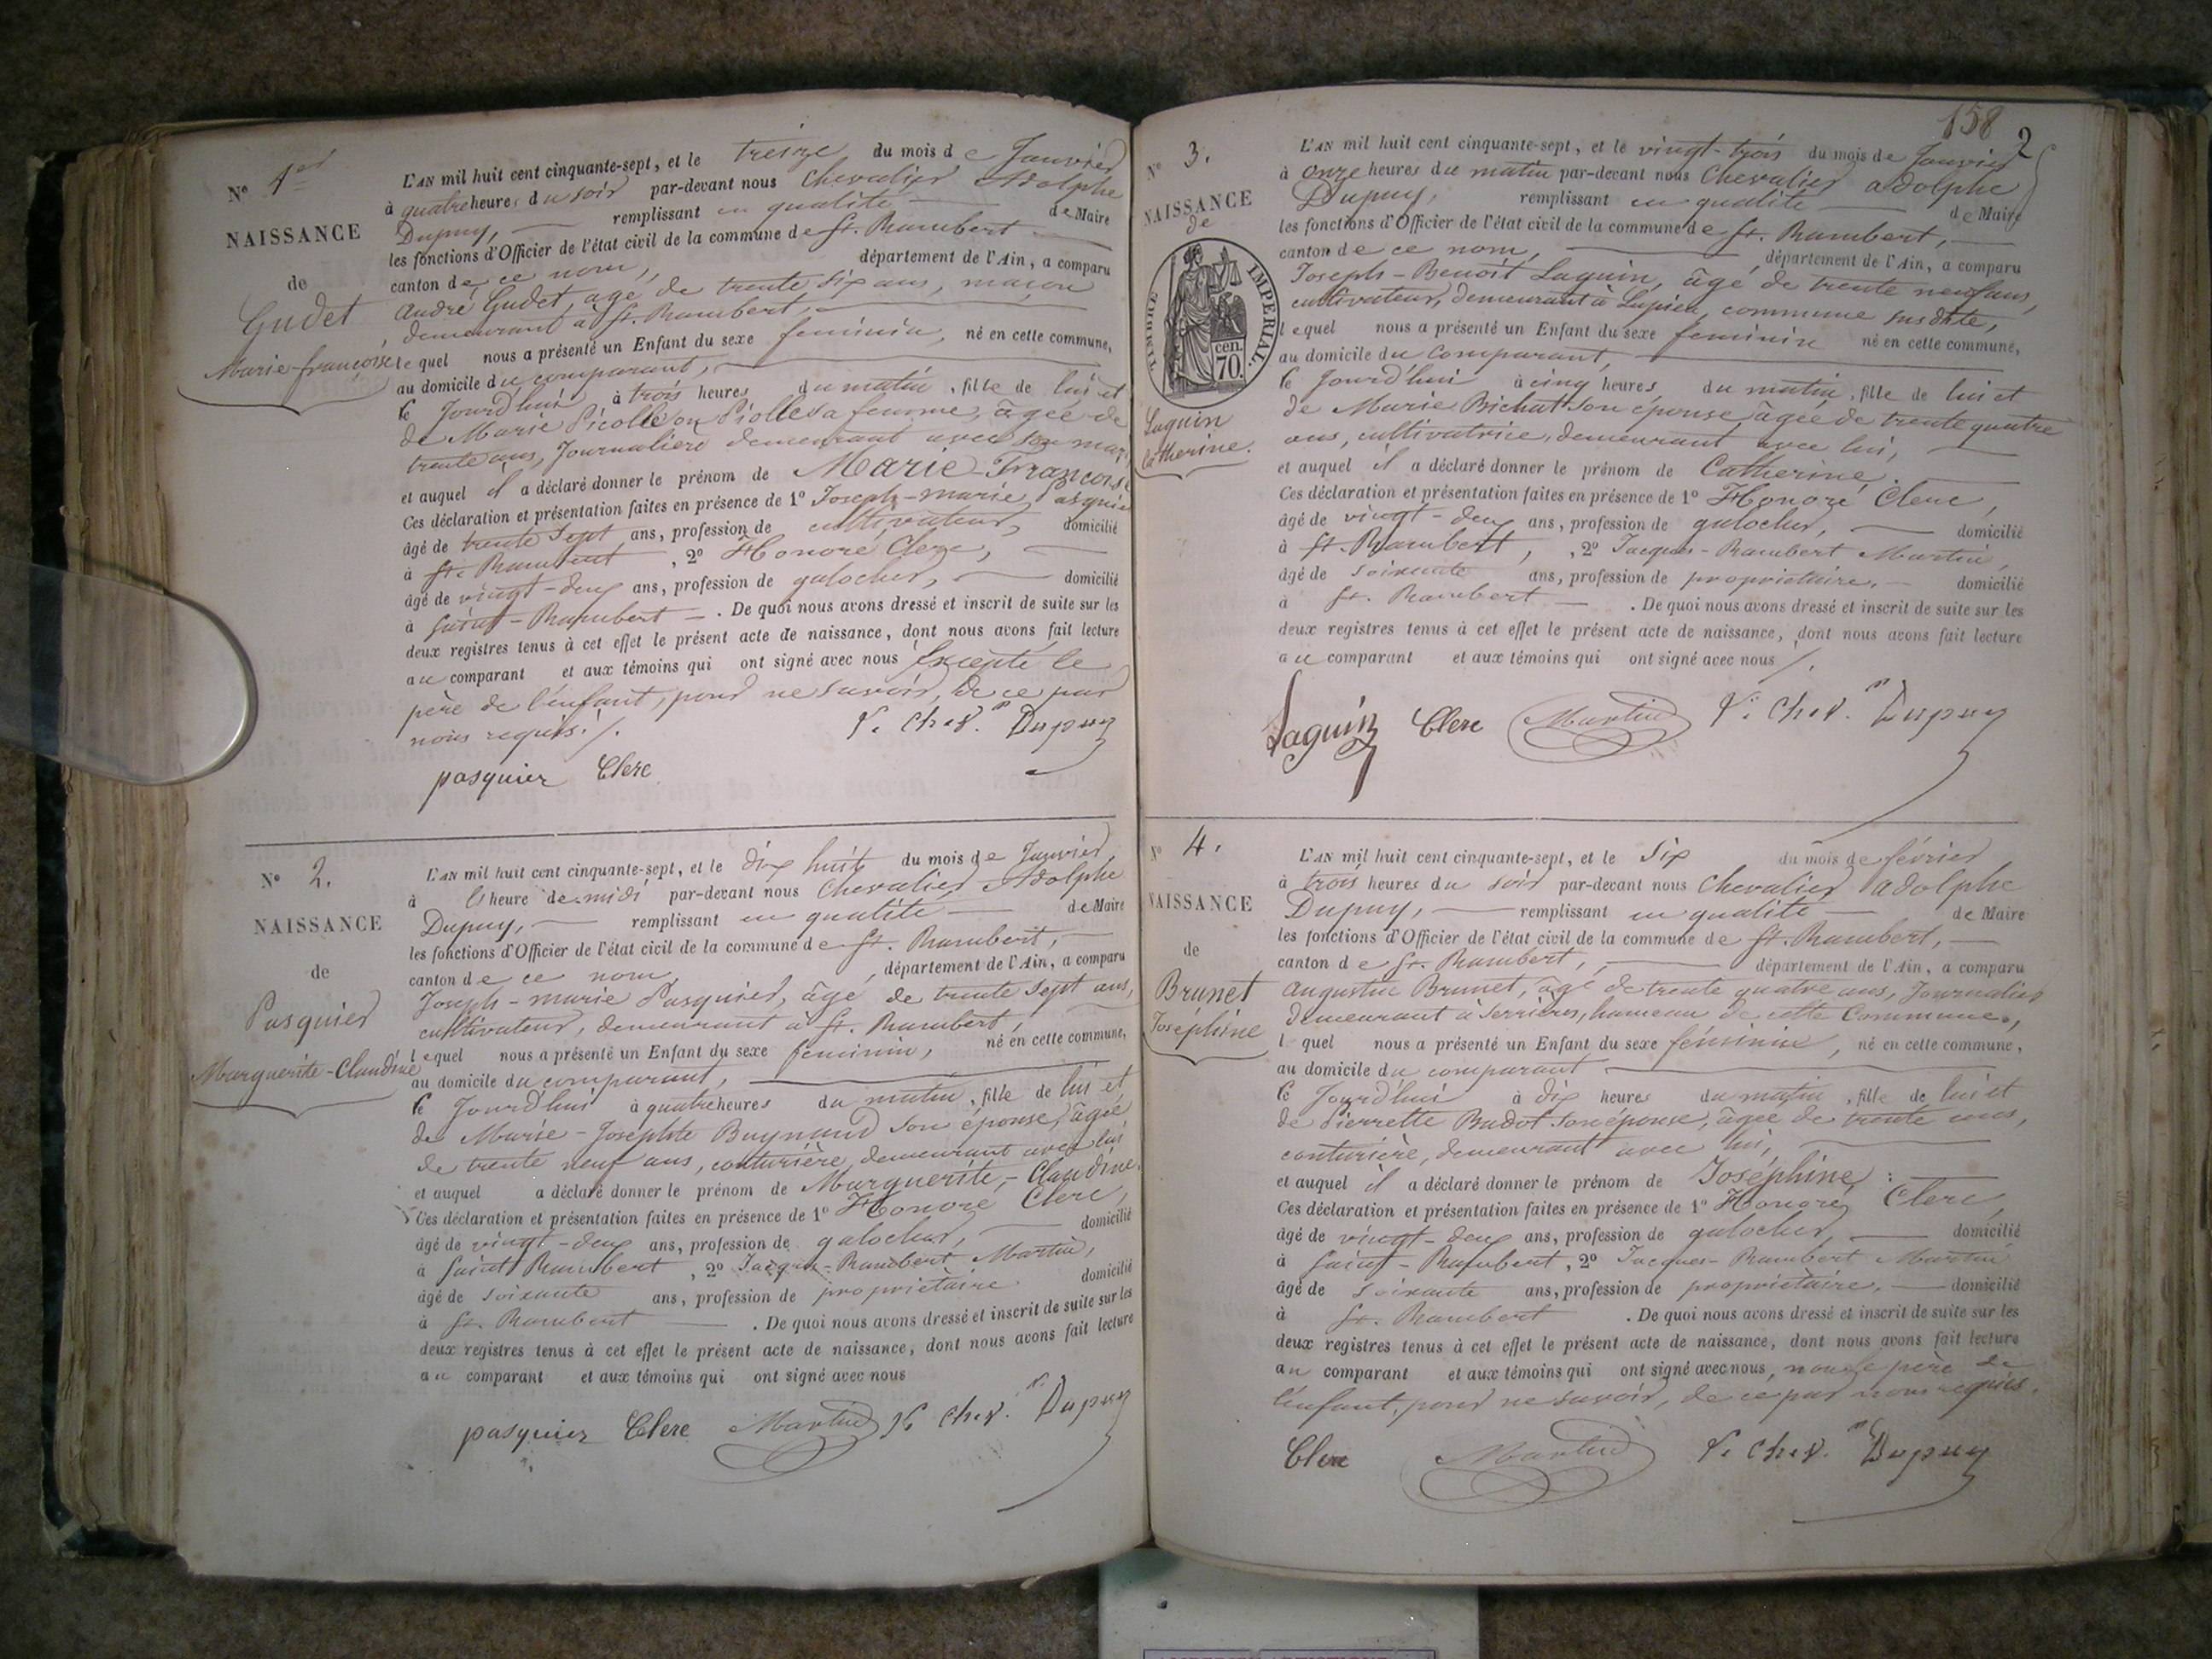 N° 1er
NAISSANCE
de
Gudet
Marie-françoise
L'AN mil huit cent cinquante-sept, et le treize du mois de Janvier
à quatre heures du soir par-devant nous Chevalier Adolphe
Dupuy, remplissant en qualité de Maire
les fonctions d'Officier de l'état civil de la commune de St. Rambert
canton de ce nom, département de l'Ain, a comparu
André Gudet, âgé de trente six ans, maçon
demeurant à St. Rambert,
lequel nous a présenté un Enfant du sexe feminin, né en cette commune,
au domicile du comparant,
le Jourd'hui à trois heures du matin, fille de lui et
de Marie Picolle ou Piolle sa femme, âgée de
trente ans, Journalière demeurant avec son mari
et auquel il a déclaré donner le prénom de Marie-Françoise
Ces déclaration et présentation faites en présence de 1° Joseph-marie Pasquier
âgé de trente sept ans, profession de cultivateur, domicilié
à St. Rambert, 2° Honoré Clerc,
âgé de vingt-deux ans, profession de galocher, domicilié
à Saint-Rambert. De quoi nous avons dressé et inscrit de suite sur les
deux registres tenus à cet effet le présent acte de naissance, dont nous avons fait lecture
au comparant et aux témoins qui ont signé avec nous Excepté le
père de l'enfant, pour ne savoir, de ce par
nous requis./.
Chev. Dupuy
pasquier Clerc
N° 2.
NAISSANCE
de
Pasquier
Marguerite-Claudine
L'AN mil huit cent cinquante-sept, et le dix huit du mois de Janvier
à l'heure de midi par-devant nous Chevalier Adolphe
Dupuy, remplissant en qualité de Maire
les fonctions d'Officier de l'état civil de la commune de St. Rambert,
canton de ce nom, département de l'Ain, a comparu
Joseph-marie Pasquier, âgé de trente sept ans,
cultivateur, demeurant à St. Rambert,
lequel nous a présenté un Enfant du sexe feminin, né en cette commune,
au domicile du comparant,
le Jourd'hui à quatre heures du matin, fille de lui et
de Marie-Josephte Buynand son épouse, âgée
de trente neuf ans, couturière, demeurant avec lui
et auquel a déclaré donner le prénom de Marguerite-Claudine.
Ces déclaration et présentation faites en présence de 1° Honoré Clerc,
âgé de vingt-deux ans, profession de galocher, domicilié
à Saint Rambert, 2° Jacques-Rambert Martin,
âgé de soixante ans, profession de propriétaire domicilié
à St. Rambert. De quoi nous avons dressé et inscrit de suite sur les
deux registres tenus à cet effet le présent acte de naissance, dont nous avons fait lecture
au comparant et aux témoins qui ont signé avec nous
pasquier Clerc Martin Chev. Dupuy
158 2
N° 3.
NAISSANCE
de
TIMBRE IMPERIAL.
70. cen.
Laguin
Catherine.
L'AN mil huit cent cinquante-sept, et le vingt-trois du mois de Janvier
à onze heures du matin par-devant nous Chevalier adolphe
Dupuy, remplissant en qualité de Maire
les fonctions d'Officier de l'état civil de la commune de St. Rambert,
canton de ce nom, département de l'Ain, a comparu
Joseph-Benoit Laguin, âgé de trente neuf ans,
cultivateur, demeurant à Lupieu, commune susdite,
lequel nous a présenté un Enfant du sexe feminin né en cette commune,
au domicile du comparant,
le Jourd'hui à cinq heures du matin, fille de lui et
de Marie Bichat son épouse, âgée de trente quatre
ans, cultivatrice, demeurant avec lui,
et auquel il a déclaré donner le prénom de Catherine.
Ces déclaration et présentation faites en présence de 1° Honoré Clerc,
âgé de vingt-deux ans, profession de galocher, domicilié
à St. Rambert, 2° Jacques-Rambert Martin,
âgé de soixante ans, profession de propriétaire, domicilié
à St. Rambert. De quoi nous avons dressé et inscrit de suite sur les
deux registres tenus à cet effet le présent acte de naissance, dont nous avons fait lecture
au comparant et aux témoins qui ont signé avec nous /.
Laguin Clerc Martin Chev. Dupuy
N° 4.
NAISSANCE
de
Brunet
Joséphine
L'AN mil huit cent cinquante-sept, et le Six du mois de février
à trois heures du soir par-devant nous Chevalier adolphe
Dupuy, remplissant en qualité de Maire
les fonctions d'Officier de l'état civil de la commune de St. Rambert,
canton de St. Rambert, département de l'Ain, a comparu
Augustin Brunet, âgé de trente quatre ans, Journalier
demeurant à Serrières, hameau de cette Commune,
l quel nous a présenté un Enfant du sexe féminin, né en cette commune,
au domicile du comparant
le Jourd'hui à dix heures du matin, fille de lui et
de Pierrette Budot son épouse, âgée de trente ans,
couturière, demeurant avec lui,
et auquel il a déclaré donner le prénom de Joséphine :
Ces déclaration et présentation faites en présence de 1° Honoré Clerc,
âgé de vingt-deux ans, profession de galocher, domicilié
à Saint-Rambert, 2° Jacques-Rambert Martin
âgé de soixante ans, profession de propriétaire, domicilié
à St. Rambert. De quoi nous avons dressé et inscrit de suite sur les
deux registres tenus à cet effet le présent acte de naissance, dont nous avons fait lecture
au comparant et aux témoins qui ont signé avec nous, non le père de
l'enfant, pour ne savoir, de ce par nous requis.
Clerc Martin Chev. Dupuy